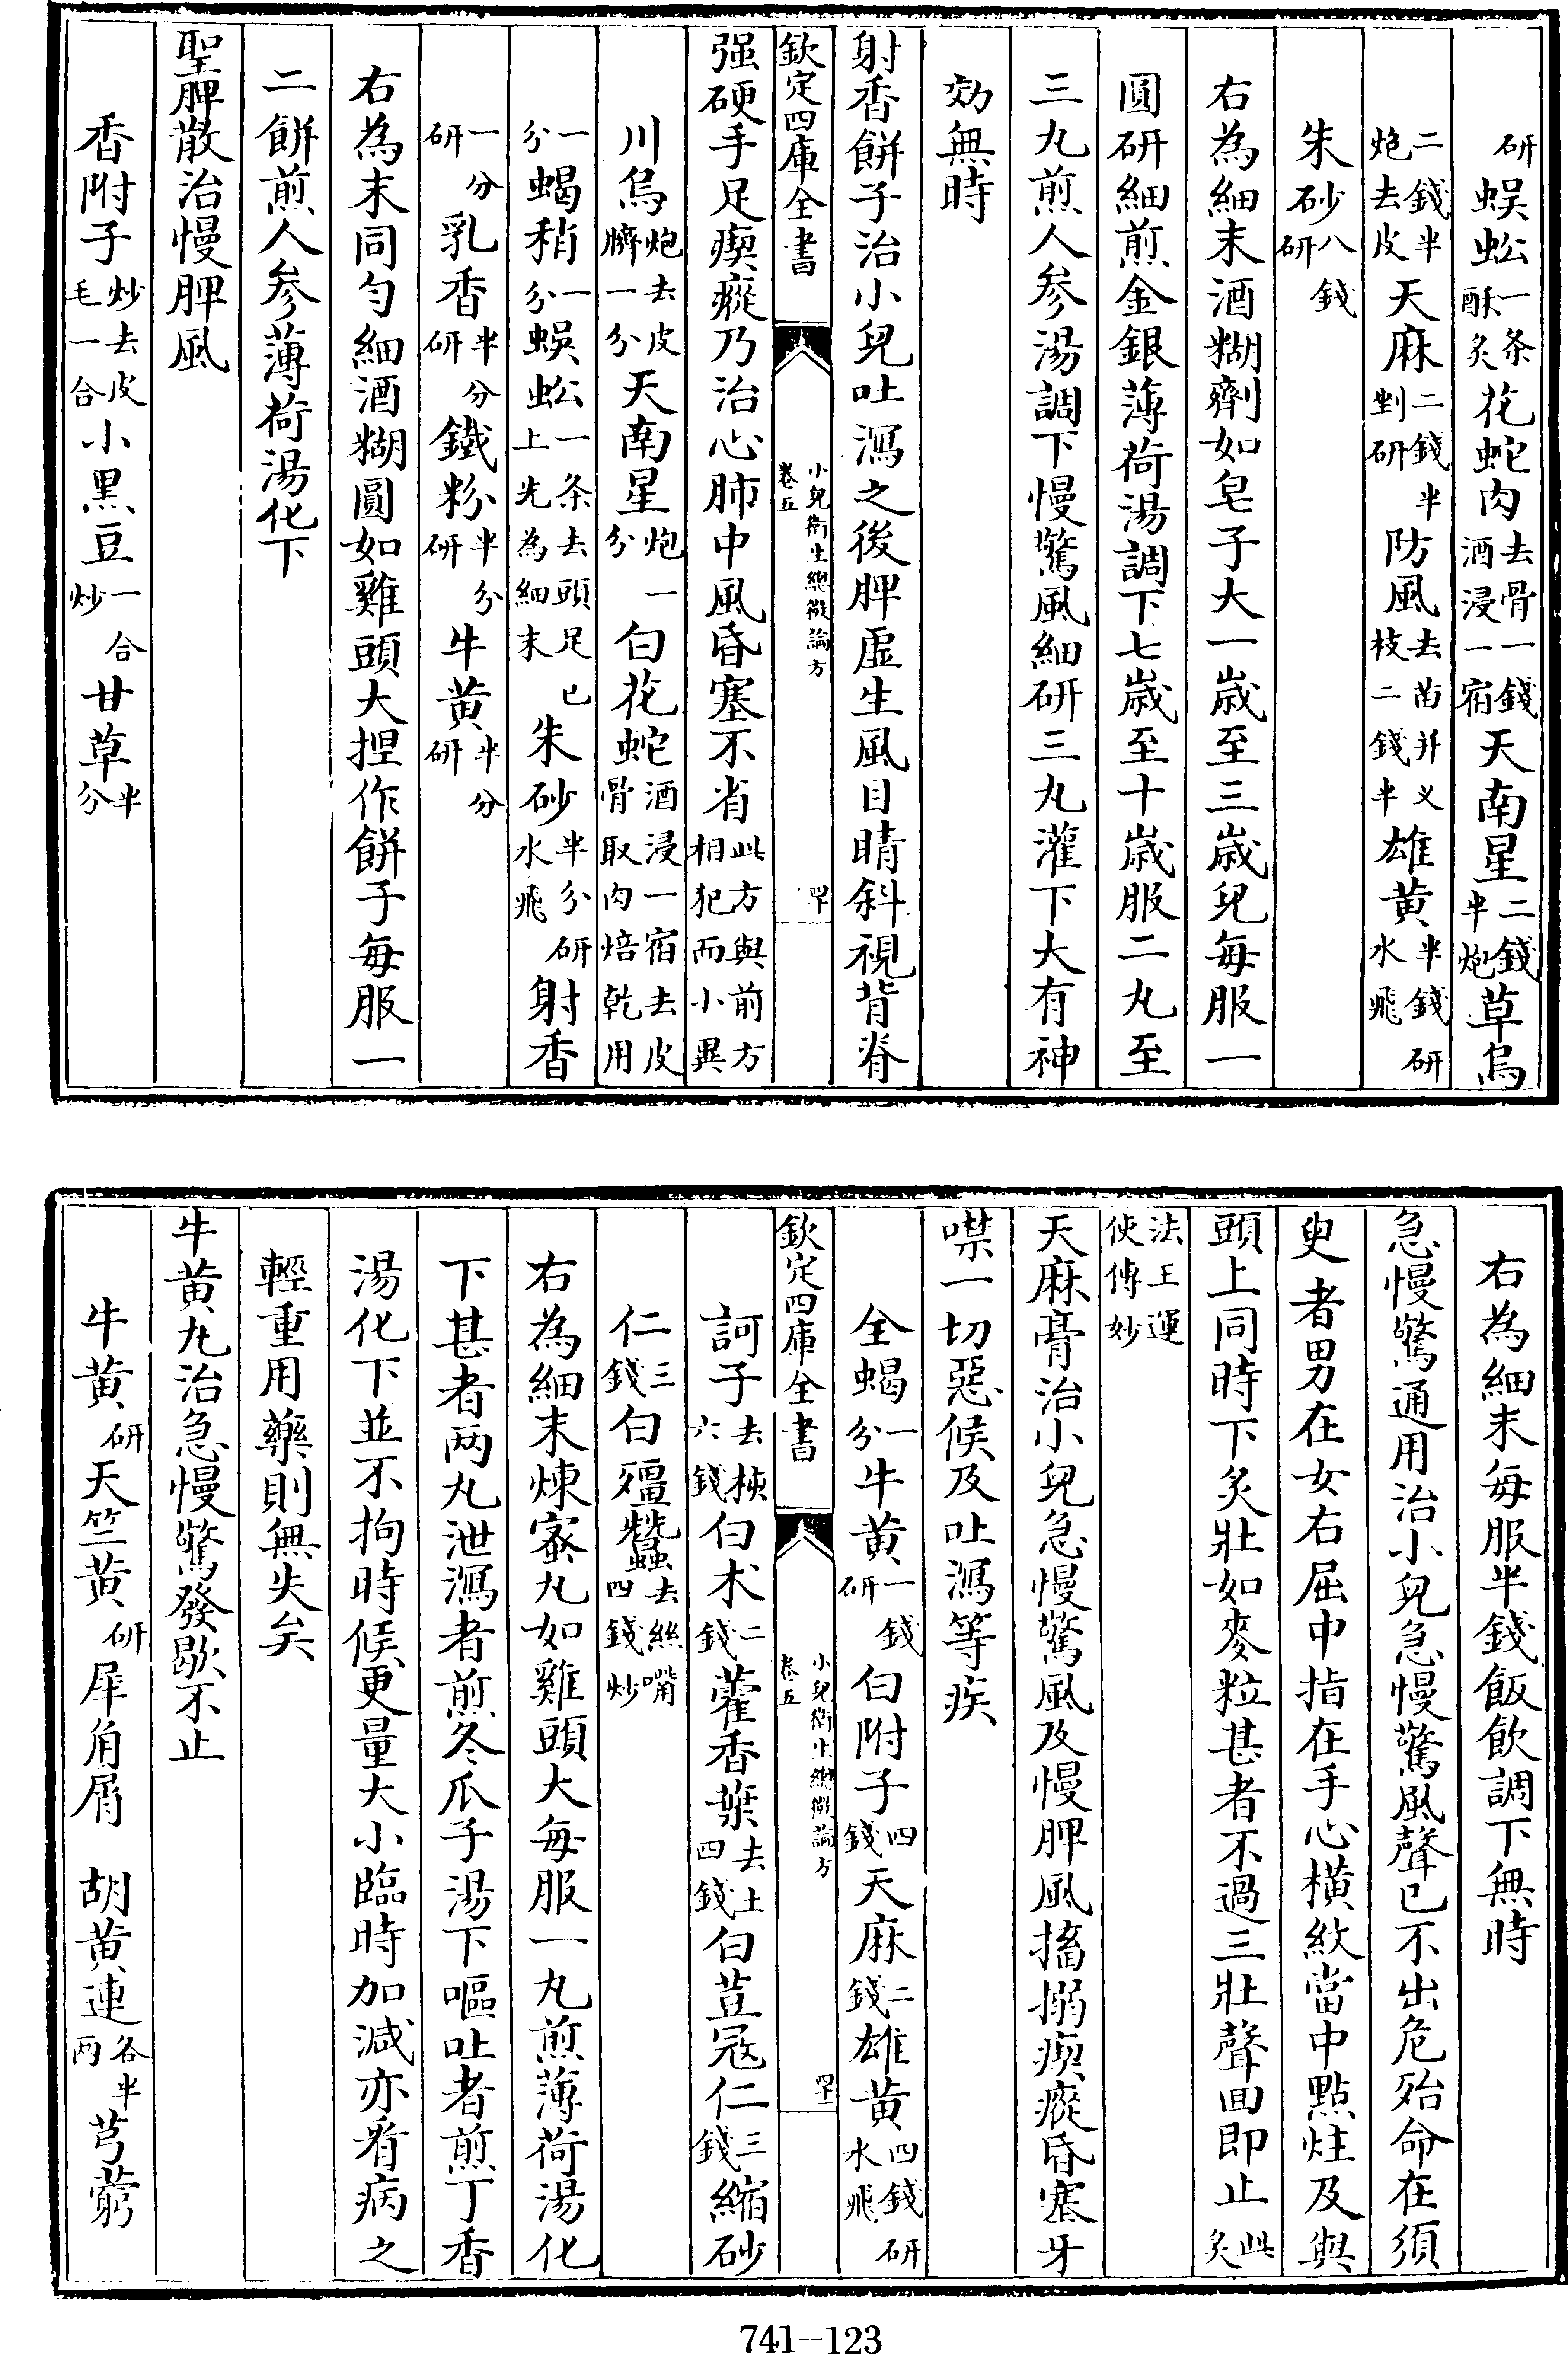 研蜈蚣一条酥炙花蛇肉去骨一錢酒浸一宿天南星二錢半炮草烏
二錢半炮去皮天麻二錢半剉研防風去苗并义枝二錢半雄黄半錢研水飛
朱砂八錢研
右為細末酒糊劑如皂子大一歲至三歲兒每服一
圓研細煎金銀薄荷湯調下七歲至十歲服二丸至
三丸煎人參湯調下慢驚風細研三丸灌下大有神
効無時
射香餅子治小兒吐瀉之後脾虛生風目睛斜視背脊
欽定四庫全書 小兒衛生總微論方 卷五 罕
强硬手足瘈瘲乃治心肺中風昏塞不省此方與前方相犯而小異
川烏炮去皮臍一分天南星炮一分白花蛇酒浸一宿去皮骨取肉焙乾用
一分蝎稍一分蜈蚣一条去頭足已上先為細末朱砂半分研水飛射香
一分研乳香半分研鐵粉半分研牛黄半分研
右為末同勻細酒糊圓如雞頭大捏作餅子每服一
二餅煎人參薄荷湯化下
聖脾散治慢脾風
香附子炒去皮毛一合小黒豆一合炒甘草半分
右為細末每服半錢飯飲調下無時
急慢驚通用治小兒急慢驚風聲已不出危殆命在須
臾者男在女右屈中指在手心橫紋當中點炷及與
頭上同時下炙壯如麥粒甚者不過三壯聲回即止此炙
法王運使傳妙
天麻膏治小兒急慢驚風及慢脾風搐搦瘈瘲昏塞牙
噤一切惡候及吐瀉等疾
全蝎一分牛黄一錢研白附子四錢天麻二錢雄黄四錢研水飛
欽定四庫全書 小兒衛生總微論方 卷五 罕二
訶子去核六錢白术二錢藿香葉去土四錢白荳冦仁三錢縮砂
仁三錢白殭蠶去絲嘴四錢炒
右為細末煉蜜丸如雞頭大每服一丸煎薄荷湯化
下甚者两丸泄瀉者煎冬瓜子湯下嘔吐者煎丁香
湯化下並不拘時候更量大小臨時加減亦看病之
輕重用藥則無失矣
牛黄丸治急慢驚發歇不止
牛黄研天竺黄研犀角屑 胡黄連各半两芎藭
741—123